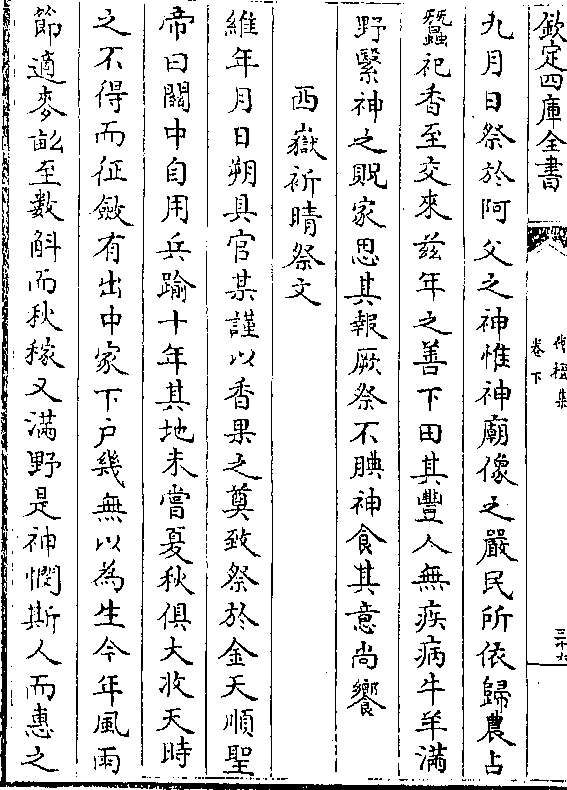 欽定四庫全書
卷下
九月日祭於阿父之神惟神廟像之嚴民所依歸農占
蠶祀香至交來兹年之善下田其豐人無疾病牛羊滿
野繄神之貺家思其報厥祭不腆神食其意尚饗
西嶽祈晴祭文
維年月日朔具官某謹以香果之奠致祭於金天順聖
帝曰關中自用兵踰十年其地未嘗夏秋俱大收天時
之不得而征斂有出中家下戶幾無以為生今年風雨
節適麥畝至數斛而秋稼又滿野是神憫斯人而惠之